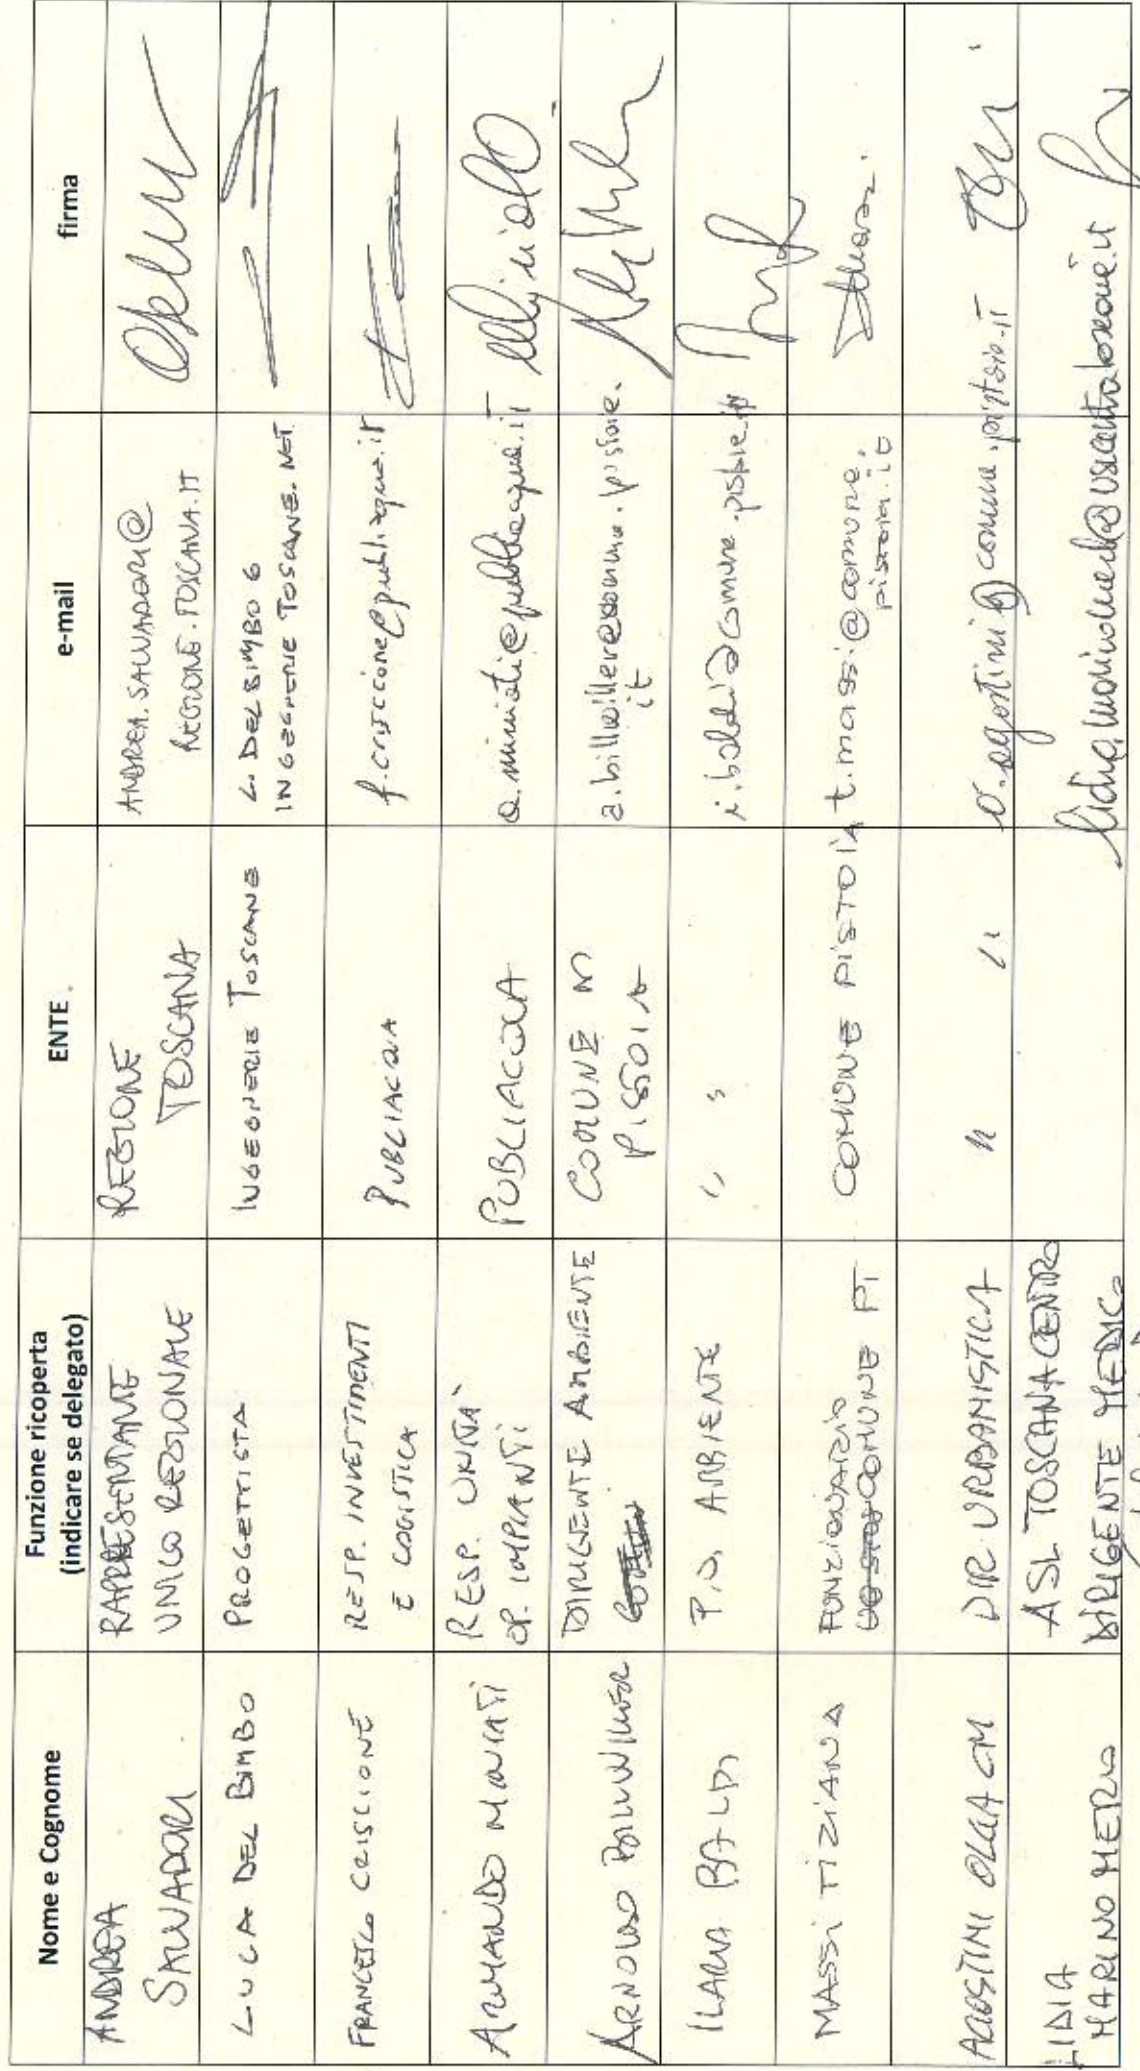 Nome e Cognome
Funzione ricoperta
(indicare se delegato)
ENTE
e-mail
firma
ANDREA
SALVADORI
RAPPRESENTANTE
UNICO REGIONALE
REGIONE
TOSCANA
ANDREA.SALVADORI@
REGIONE.TOSCANA.IT
LUCA DEL BIMBO
PROGETTISTA
INGEGNERIE TOSCANE
L. DEL BIMBO @
INGEGNERIE TOSCANE. NET
FRANCESCO CRISCIONE
RESP. INVESTIMENTI
E LOGISTICA
PUBLIACQUA
f.criscione@publiacqua.it
ARMANDO MINIATI
RESP. UNITÀ
OP. IMPIANTI
PUBLIACQUA
a.miniati@publiacqua.it
ARNOLDO BILLWILLER
DIRIGENTE AMBIENTE
COMUNE DI
PISTOIA
a.billwiller@comune.pistoia.
it
ILARIA BALDI
P.O. AMBIENTE
" "
i.baldi@comune.pistoia.it
MASSI TIZIANA
FUNZIONARIO
COMUNE PT
COMUNE PISTOIA
t.massi@comune.
pistoia.it
AGOSTINI OLGA CM
DIR URBANISTICA
" "
o.agostini@comune.pistoia.it
LIDIA
MARINO MERLO
ASL TOSCANA CENTRO
DIRIGENTE MEDICO
lidia.marinomerlo@uslcentro.toscana.it